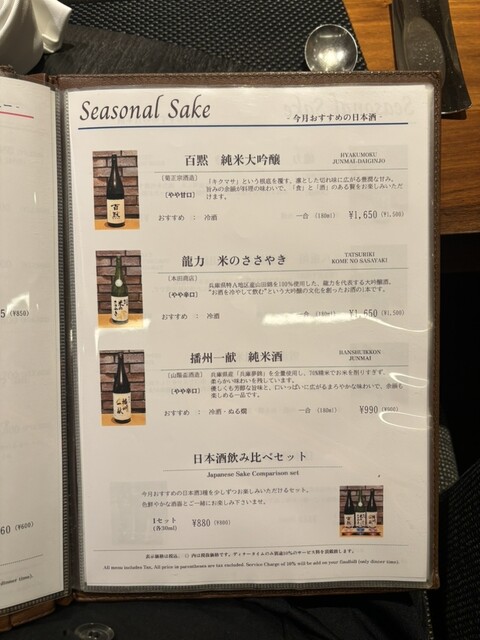 Seasonal Sake
- 今月おすすめの日本酒 -
百黙 純米大吟醸
HYAKUMOKU
JUNMAI-DAIGINJO
[菊正宗酒造]
[やや甘口]
「キクマサ」という概念を覆す、凛とした切れ味に広がる豊潤な甘み。
旨みの余韻が料理の味わいで、「食」と「酒」のある贅をお楽しみいただ
けます。
おすすめ : 冷酒
一合 (180ml) ¥1,650 (¥1,500)
龍力 米のささやき
TATSURIKI
KOME NO SASAYAKI
[本田商店]
[やや辛口]
兵庫県特A地区産山田錦を100%使用した、龍力を代表する大吟醸酒。
"お酒を冷やして飲む"という大吟醸の文化を創ったお酒の1本です。
おすすめ : 冷酒
一合 (180ml) ¥1,650 (¥1,500)
播州一献 純米酒
BANSHUIKKON
JUNMAI
[山陽盃酒造]
[やや辛口]
兵庫県産「兵庫夢錦」を全量使用し、70%精米でお米を削りすぎず、
柔らかい味わいを残しています。
優しくも芳醇な旨味と、口いっぱいに広がるまろやかな味わいで、余韻も
楽しめる一品です。
おすすめ : 冷酒・ぬる燗
一合 (180ml) ¥990 (¥900)
日本酒飲み比べセット
Japanese Sake Comparison set
今月おすすめの日本酒3種を少しずつお楽しみいただけるセット。
色鮮やかな酒器とご一緒にお楽しみ下さいませ。
1セット
(各30ml)
¥880 (¥800)
表示価格は税込、( )内は税抜価格です。ディナータイムのみ別途10%のサービス料を頂戴致します。
All menu includes Tax. All price in parentheses are tax excluded. Service Charge of 10% will be add on your finalbill (only dinner time).
5 (¥850)
60 (¥600)
dinner time).